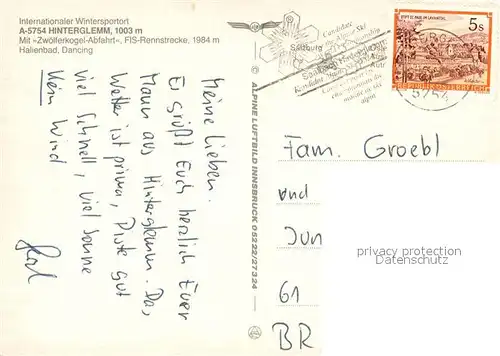 Internationaler Wintersportort
A-5754 HINTERGLEMM, 1003 m
Mit »Zwölferkogel-Abfahrt«, FIS-Rennstrecke, 1984 m
Hallenbad, Dancing
Meine Lieben.
Es grüßt Euch herzlich Euer
Mann aus Hinterglemm. Da,
Wetter ist prima, Piste gut
viel Schnell, viel Sonne
Kein Wind
© ALPINE LUFTBILD INNSBRUCK 05222/27324
Candidate
Alpine Ski
Salzburg
5754
STIFT ST. PAUL IM LAVANTTAL
5s
REPUBLIK ÖSTERREICH
Fam. Groebl
und
Jun
61
BR
privacy protection
Datenschutz AK-Ansichtskarten